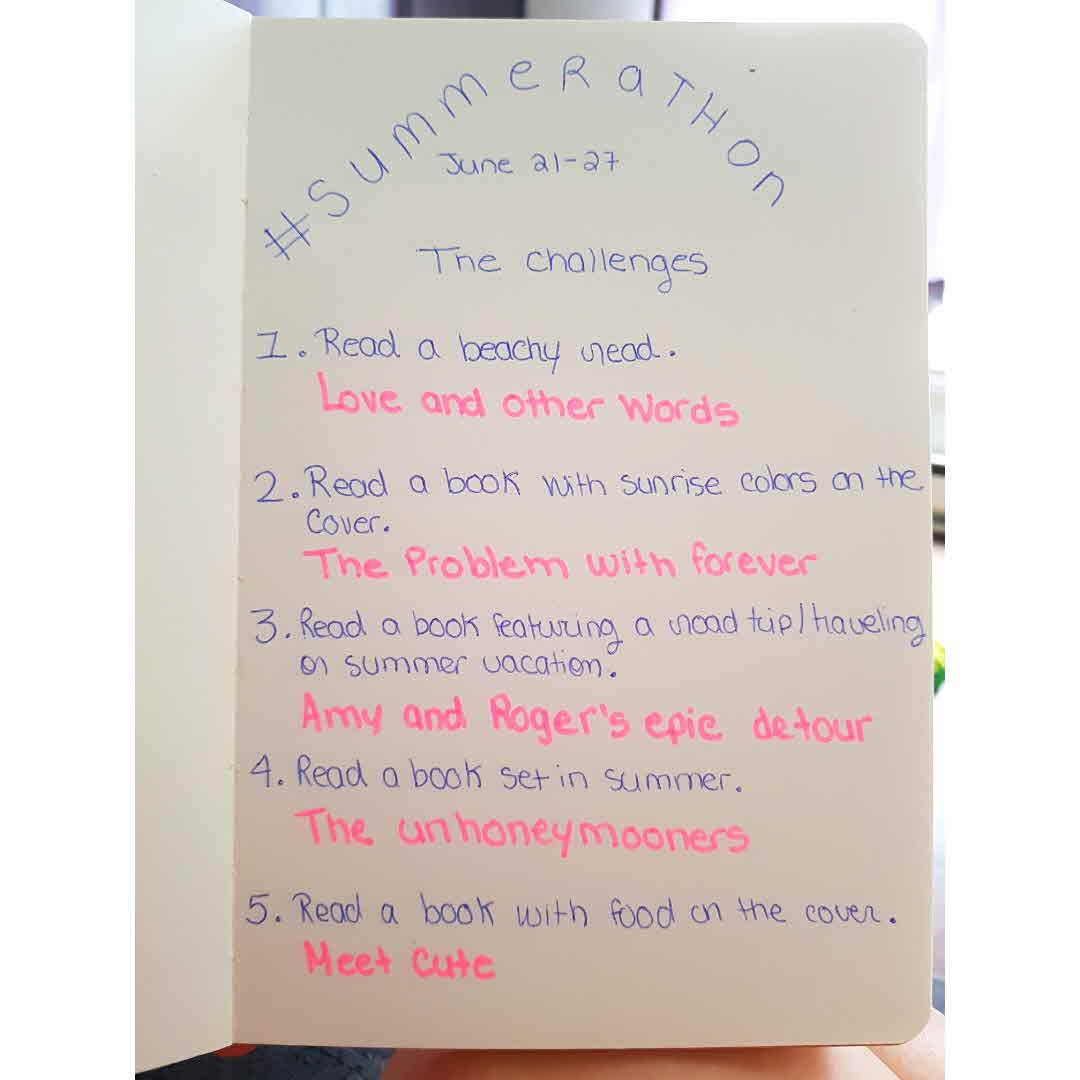 #SummeRaTHon
June 21-27
The challenges
1. Read a beachy read.
Love and other words
2. Read a book with sunrise colors on the
cover.
The Problem with forever
3. Read a book featuring a road trip/traveling
on summer vacation.
Amy and Roger's epic detour
4. Read a book set in summer.
The unhoneymooners
5. Read a book with food on the cover.
Meet Cute